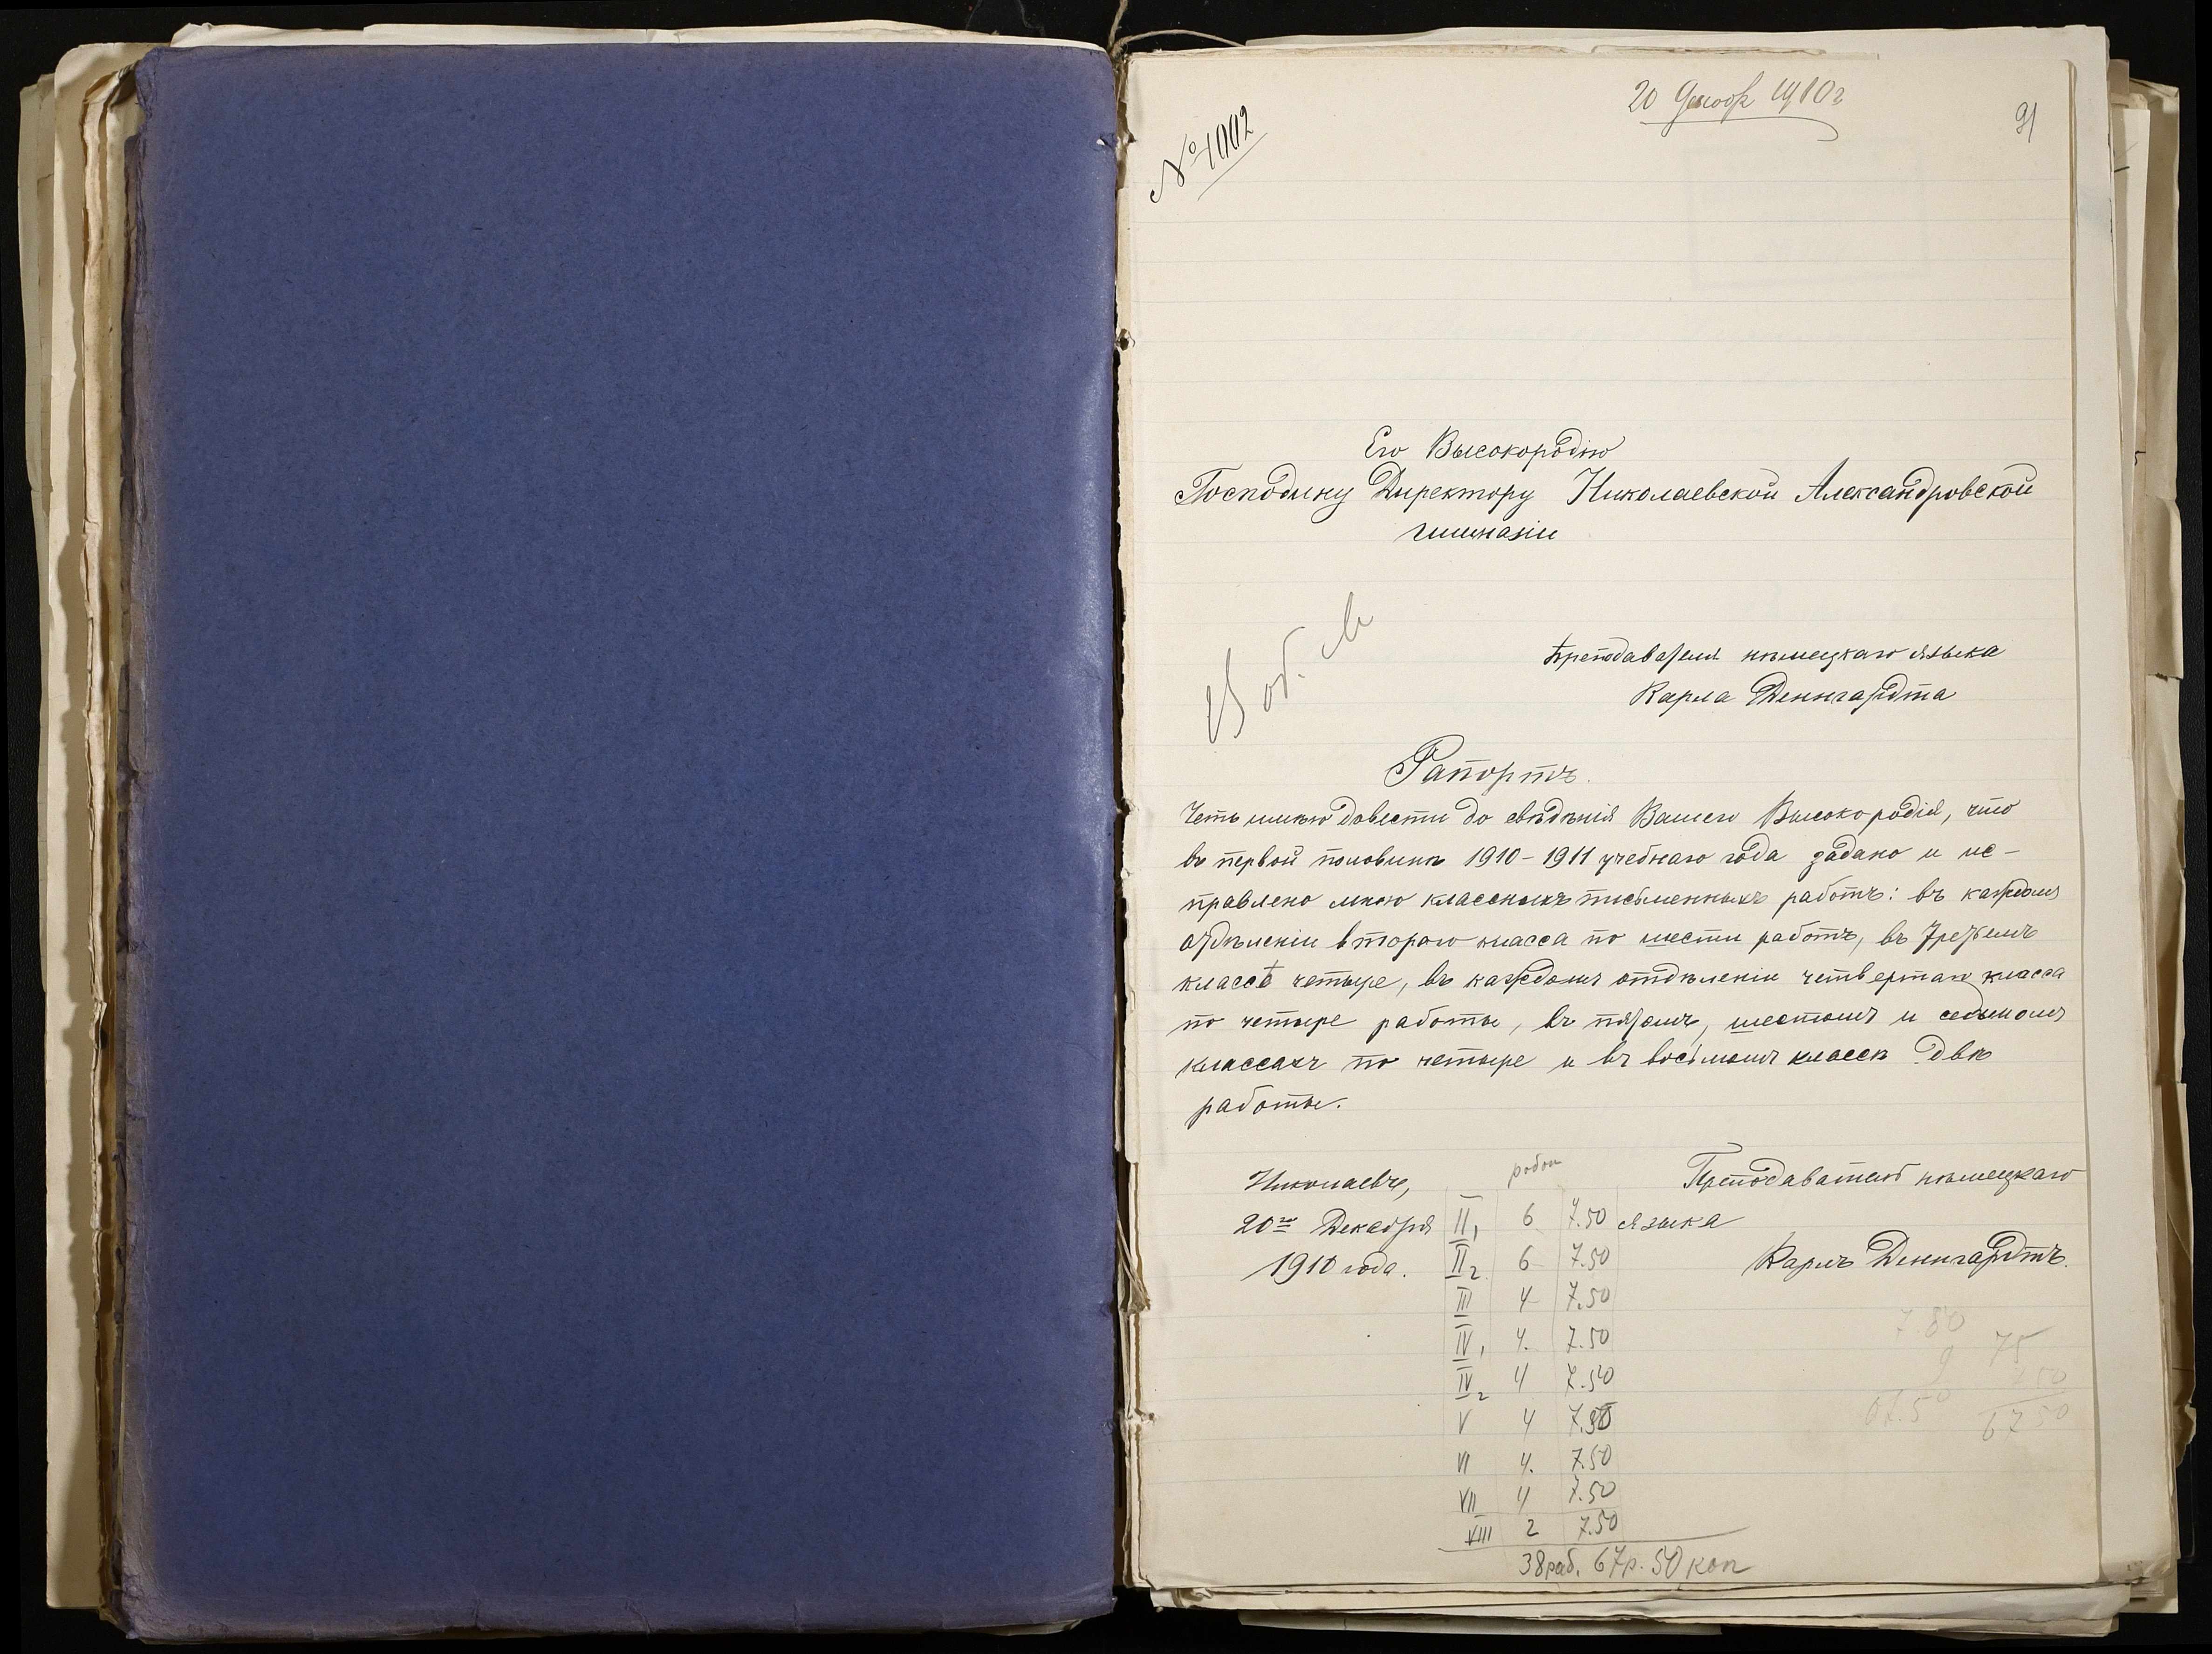 20 Декабр 1910 г
91
№ 1002
Его Высокородію
Господину Директору Николаевской Александровской
гимназіи
преподавателя нѣмецкаго языка
Карла Деннгардта
Рапортъ.
Честь имѣю довести до свѣдѣнія Вашего Высокородія, что
въ первой половинѣ 1910-1911 учебнаго года задано и ис-
правлено мною классныхъ письменныхъ работъ: въ каждомъ
отдѣленіи второго класса по шести работъ, въ третьемъ
классѣ четыре, въ каждомъ отдѣленіи четвертаго класса
по четыре работы, въ пятомъ, шестомъ и седьмомъ
классахъ по четыре и въ восьмомъ классѣ двѣ
работы.
Николаевъ,
20го Декабря
1910 года.
Преподаватель нѣмецкаго
языка
Карлъ Деннгардтъ.
работ
II1 6 7.50
II2 6 7.50
III 4 7.50
IV1 4. 7.50
IV2 4 7.50
V 4 7.50
VI 4. 7.50
VII 4 7.50
VIII 2 7.50
38 раб. 67 р. 50 коп
75
67.50
67 50